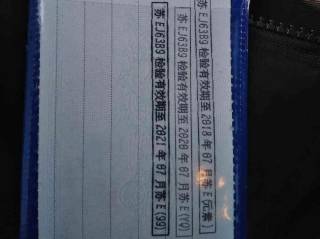 苏EJ63B9检验有效期至2018年07月苏E[元素]
苏EJ63B9检验有效期至2020年07月苏E(YQ)
苏EJ63B9检验有效期至2021年07月苏E(99)